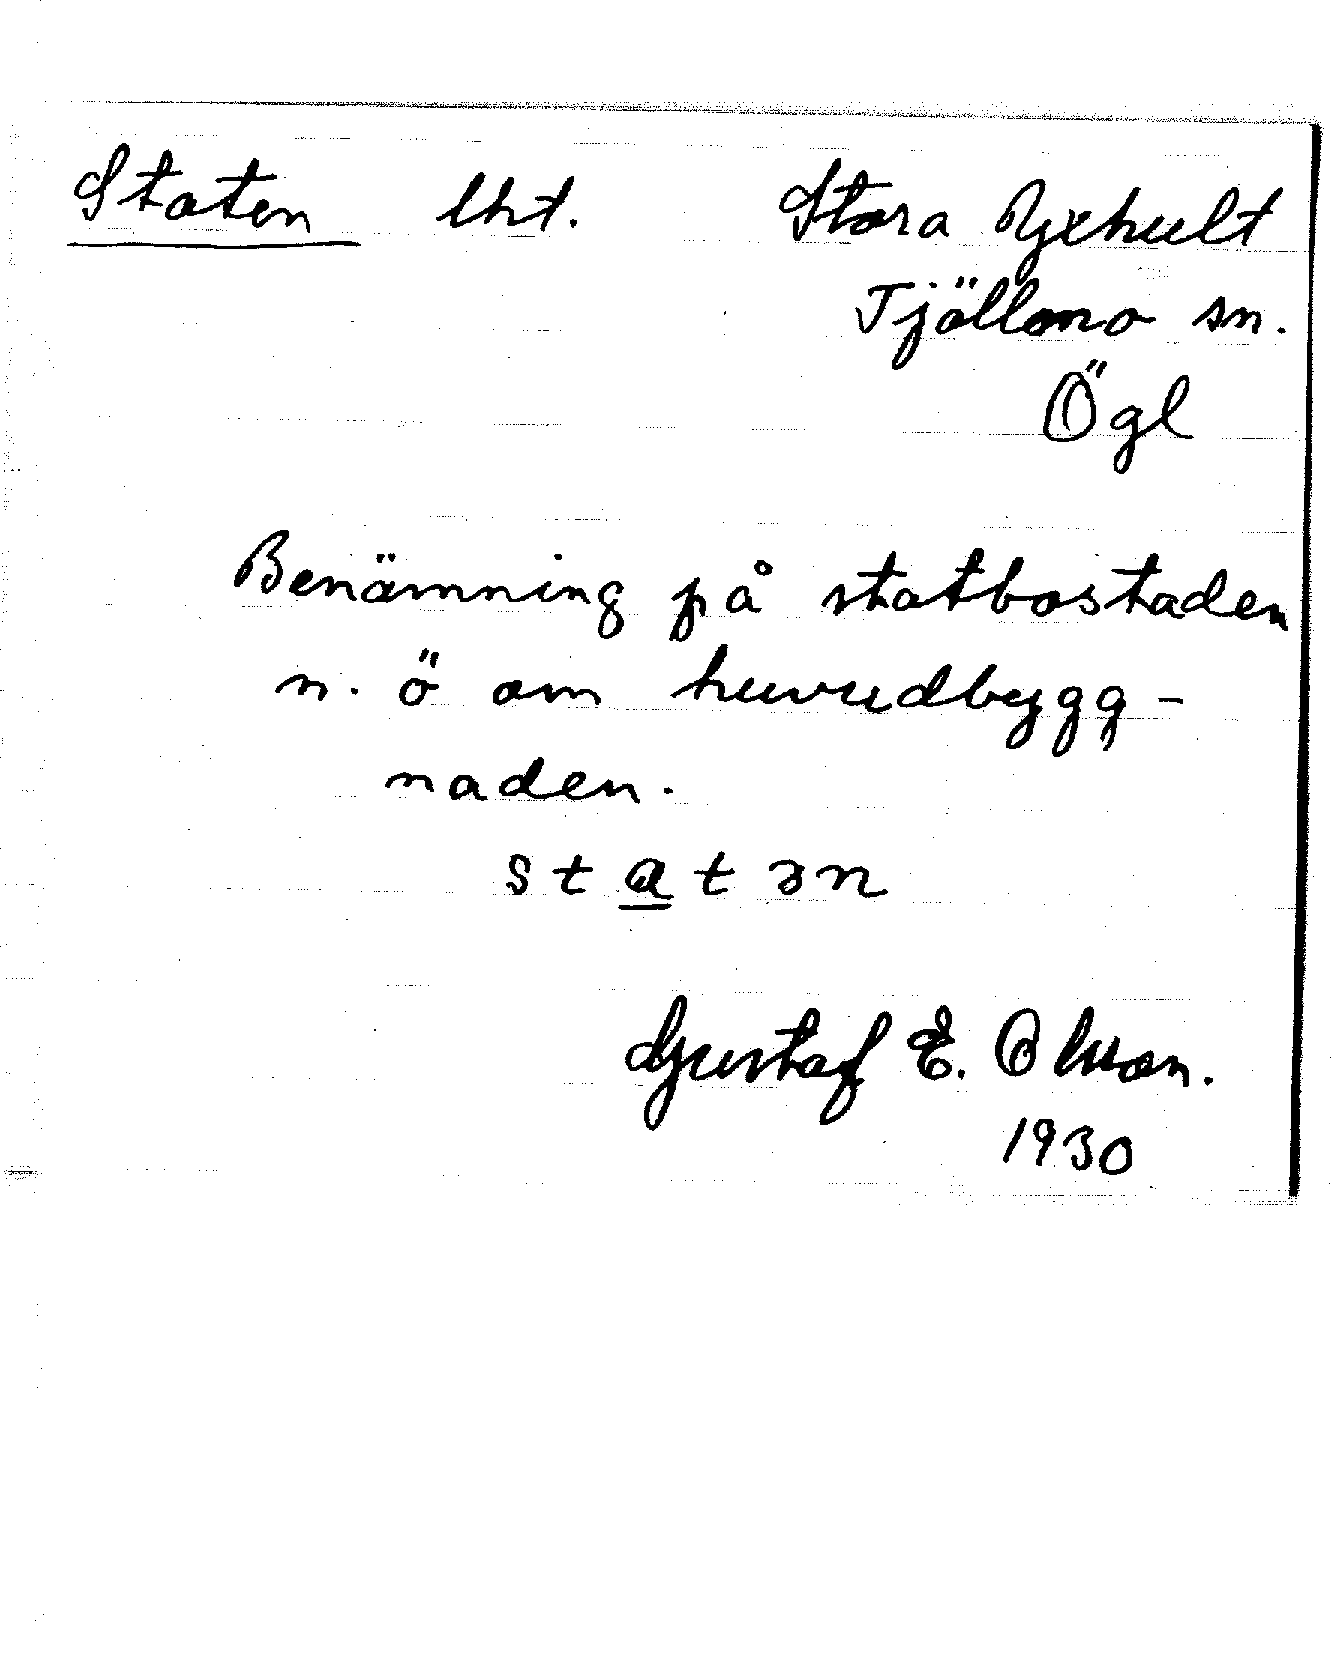 Staten lht. Stora Yxhult
Tjällmo sn.
Ögl
Benämning på statbostaden
n. ö om huvudbygg-
naden.
statən
Gustaf E. Olsson.
1930